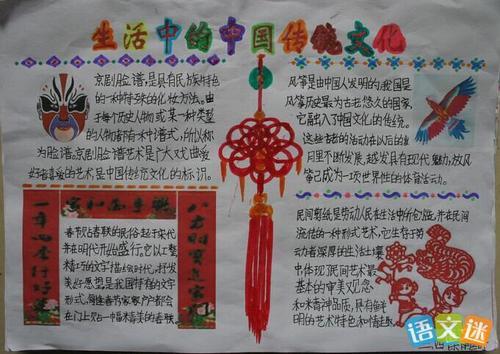 生活中的中国传统文化
京剧脸谱,是具有民族特色
的一种特殊的化妆方法。由
于每个历史人物或某一种类型
的人物都有一种谱式,所以称
为脸谱,京剧脸谱艺术是广大戏曲爱
好者喜爱的艺术是中国传统文化的标识。
风筝是由中国人发明的,我国是
风筝历史最为古老悠久的国家,
它融入了中国文化的传统。
这些古老的活动在以后的世
间里不断发展,越发具有现代魅力,放风
筝已成为一项世界性的体育活动。
家和万事联
八方财宝进家门
春节贴春联的民俗起于宋代
并在明代开始盛行。它以工整
精巧的文字描绘时代,抒发
美好愿望是我国特有的文学
形式,每逢春节家家户户都会
在门上贴一幅精美的春联。
民间剪纸是劳动人民在生活中所包
流传的一种形式艺术,它生存于劳
动者深厚的生活土壤
中体现了民间艺术最
基本的审美观念
和精神品质,具有鲜
明的艺术特色和情趣
语文迷